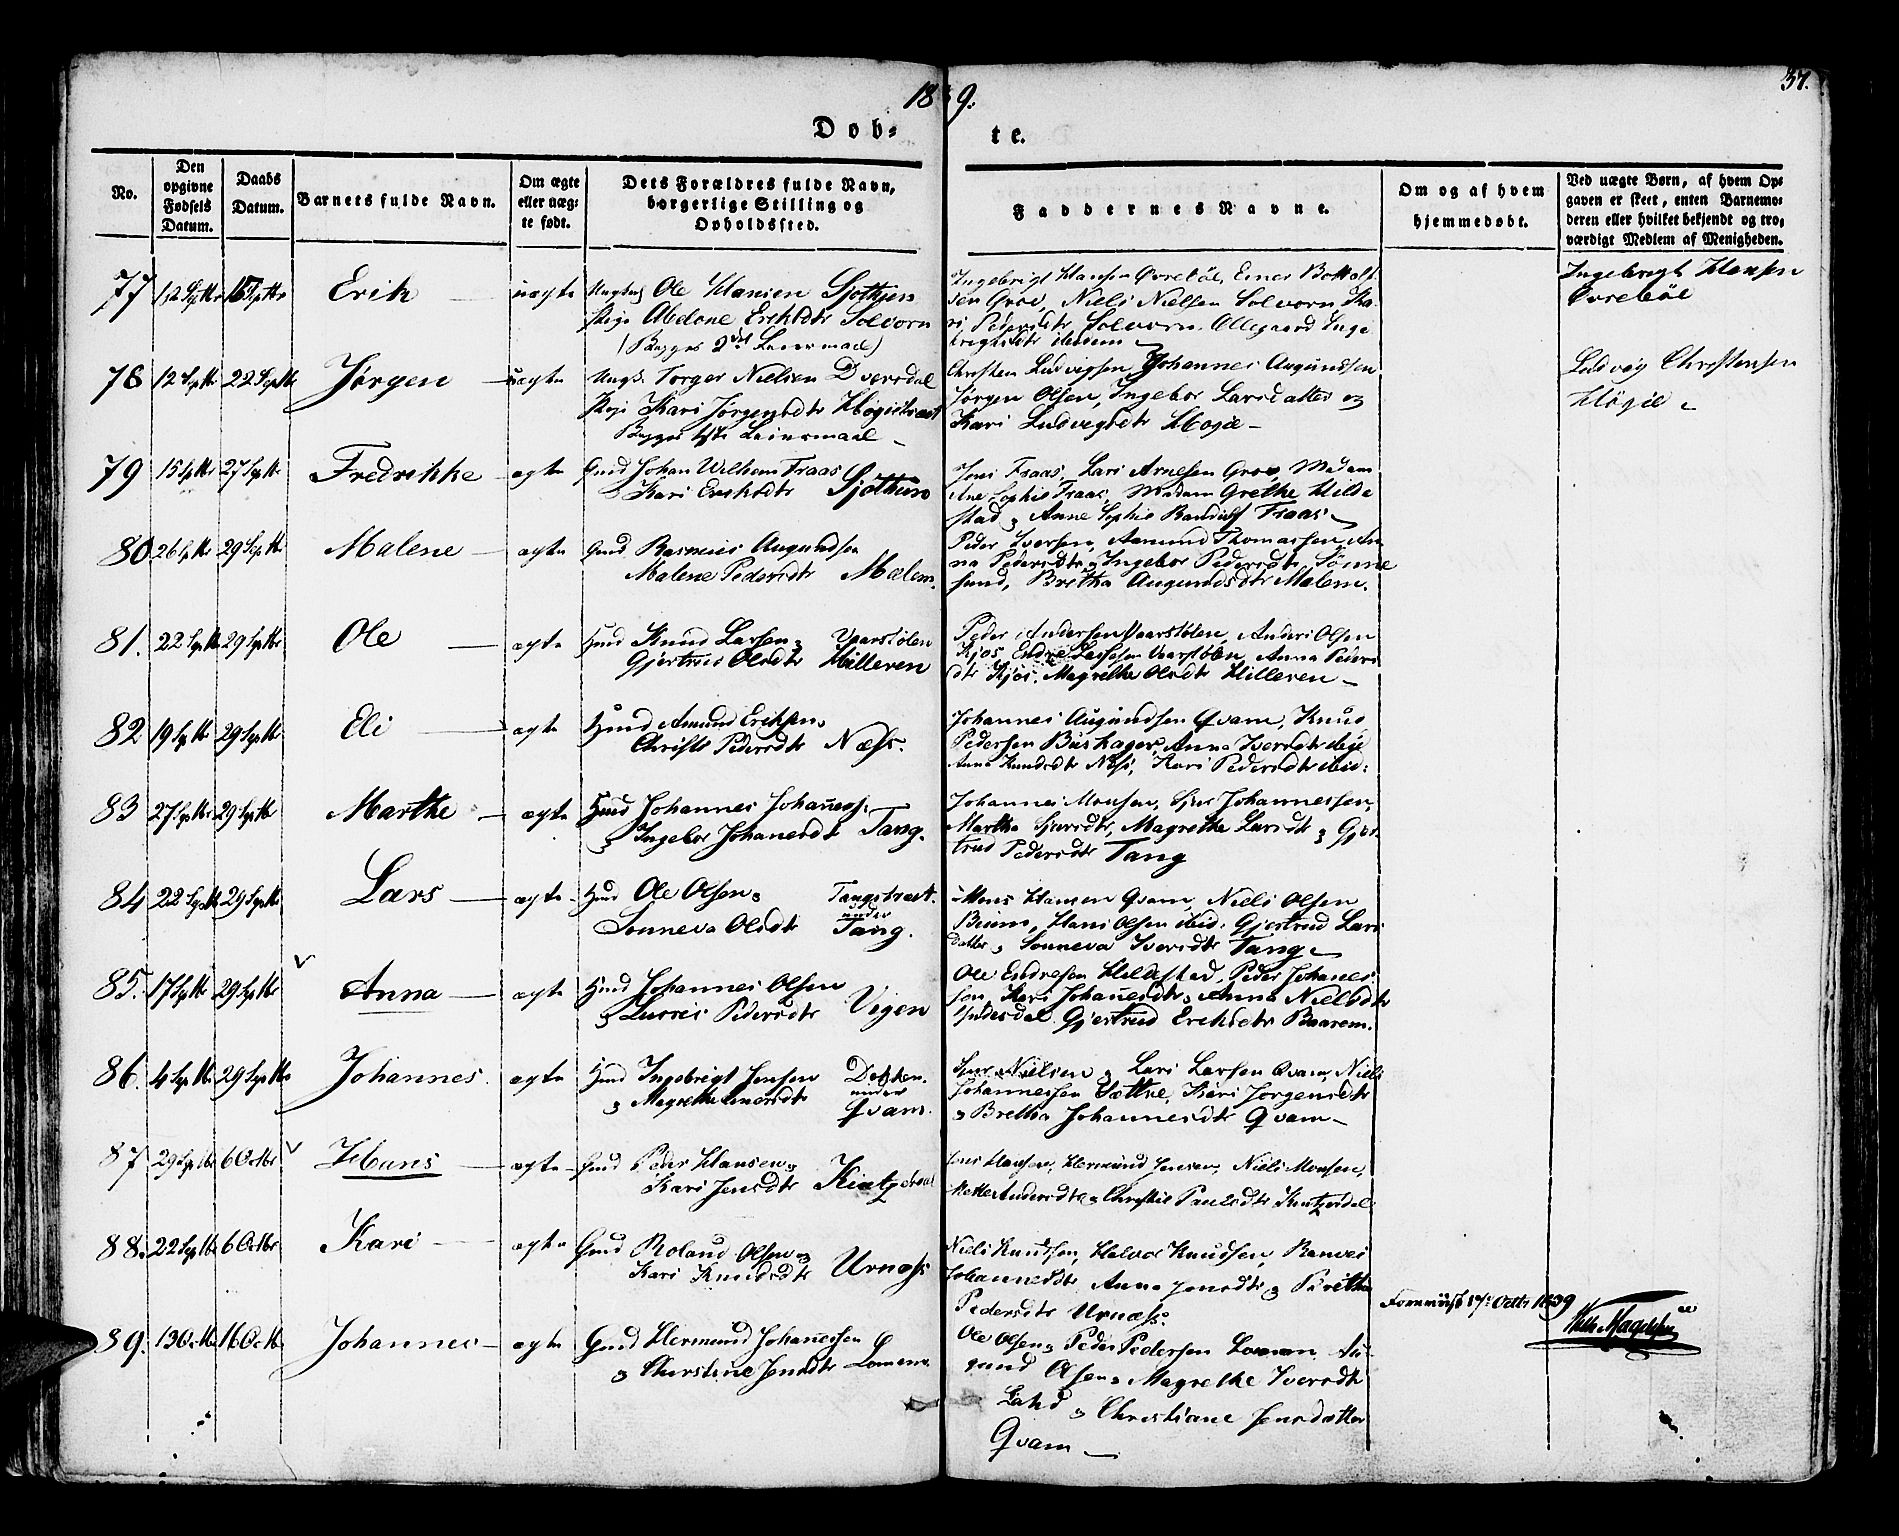 18 9.
37.
Døb- te.
No.
Den opgivne Fødsels Datum.
Daabs Datum.
Barnets fulde Navn.
Om ægte eller uæg- te født.
Dets Forældres fulde Navn, borgerlige Stilling og Opholdssted.
Faddernes Navne.
Om og af hvem hjemmedøbt.
Ved uægte Børn, af hvem Op- gaven er skeet, enten Barnemo- deren eller hvilket bekjendt og tro- værdigt Medlem af Menigheden.
77 12 Septbr Septbr Erik uægte Ungk Ole Hansen Sjøthun
Pige Abelone Eriksdtr Solvorn
(Begges 2det Leiermaal)
Ingebrigt Hansen Øvrebøe, Einer Bottolf-
sen Groe, Niels Nielsen Solvorn Ka-
ri Pedersdtr Solvorn, Ollegaard Inge
brigtsdtr ibidem
Ingebrigt Hansen
Øvrebøe
78 12 Septbr 22 Septbr Jørgen uægte Ungk. Torger Nielsen Dversdal
Pige Kari Jørgensdtr
Begges 1ste Leiermaal
Christen Ludvigsen, Johannes Augundsen
Jørgen Olsen, Ingebor Larsdatter og
Kari Ludvigsdtr Høgie
Ludvig Christensen
Høgie
79 15 Septbr 27 Septbr Fredrikke ægte Gmd Johan Wilhem Fraas
Kari Eriksdtr Sjøthun
Jens Fraas, Lars Arnesen Groe, Madam
Ane Sophie Fraas, Madam Grethe Hilde
stad Anne Sophie Fraas
80 26 Septbr 29 Septbr Malene ægte Gmd Rasmus Augundsen
Malene Pedersdtr Mælem.
Peder Iversen, Amund Thomassen An-
na Pedersdtr Ingebor Pedersdtr Sønne
sund, Brettha Augundsdtr Mælem.
81. 22 Septbr 29 Septbr Ole ægte Hmd Knud Larsen Vaarstølen
Gjertrud Olsdtr Hilleren
Peder Andersen Vaarstølen, Anders Olsen
Kjos, Endre Lassesen Vaarstølen, Anna Peders
dtr Kjos, Magrethe Olsdtr Hilleren
82 19 Septbr 29 Septbr Eli ægte Hmd Amund Eriksen
Christi Pedersdtr Næss.
Johannes Augundsen Qvam, Knud
Pedersen Anna Iversdtr
Anna Knudsdtr Næss, Kari Pedersdtr ibid:
83 27 Septbr 29 Septbr Marthe ægte Hmd Johannes Johaness:
Ingebor Johanesdt Tang.
Johannes Monsen, Sjur Johannessen,
Martha Sjursdtr, Magrethe Larsdtr Gjer-
trud Pedersdtr Tang
84 22 Septbr 29 Septbr Lars ægte Hmd Ole Olsen Tangstræt.
under
Sønneva Olsdtr Tang.
Mons Hansen Qvam, Niels Olsen
Hans Olsen ibid: Gjertrud Lars
datter Sønneva Iversdtr Tang
85. 17 Septbr 29 Septbr Anna ægte Hmd Johannes Olsen
Pedersdtr Vigen
Ole Endresen Hildestad, Peder Johanes-
sen, Kari Johanesdtr Anna Nielsdtr
Gjertrud Eriksdtr Baarem.
86. 4 Septbr 29 Septbr Johannes ægte Hmd Ingebrigt Jensen
under
Magrethe Qvam.
Sjur Nielsen Lars Larsen Qvam, Niels
Johannessen Sættre, Kari Jørgensdtr
Brettha Johannesdtr Qvam
87 29 Septbr 6 Octbr Hans ægte Gmd Peder Hansen
Kari Jensdtr
Jens Hansen, Hermund Jensen, Niels Monsen,
Mette Andersdtr Christie Paulsdtr
88. 22 Septbr 6 Octbr Kari ægte Gmd Roland Olsen
Kari Knudsdtr Urnæss
Niels Knudsen, Halvor Knudsen, Ranvei
Johannesdtr Anna Jensdtr Brittha
Pedersdtr Urnæss.
89. 13 Octbr 16 Octbr Johannes ægte Gmd Hermund Johanessen
Christine Jensdtr Lomem
Ole Olsen Peder Pedersen Lomem Au-
gund Olsen Magrethe Iversdtr
Christiane Jensdatter
Qvam
1839